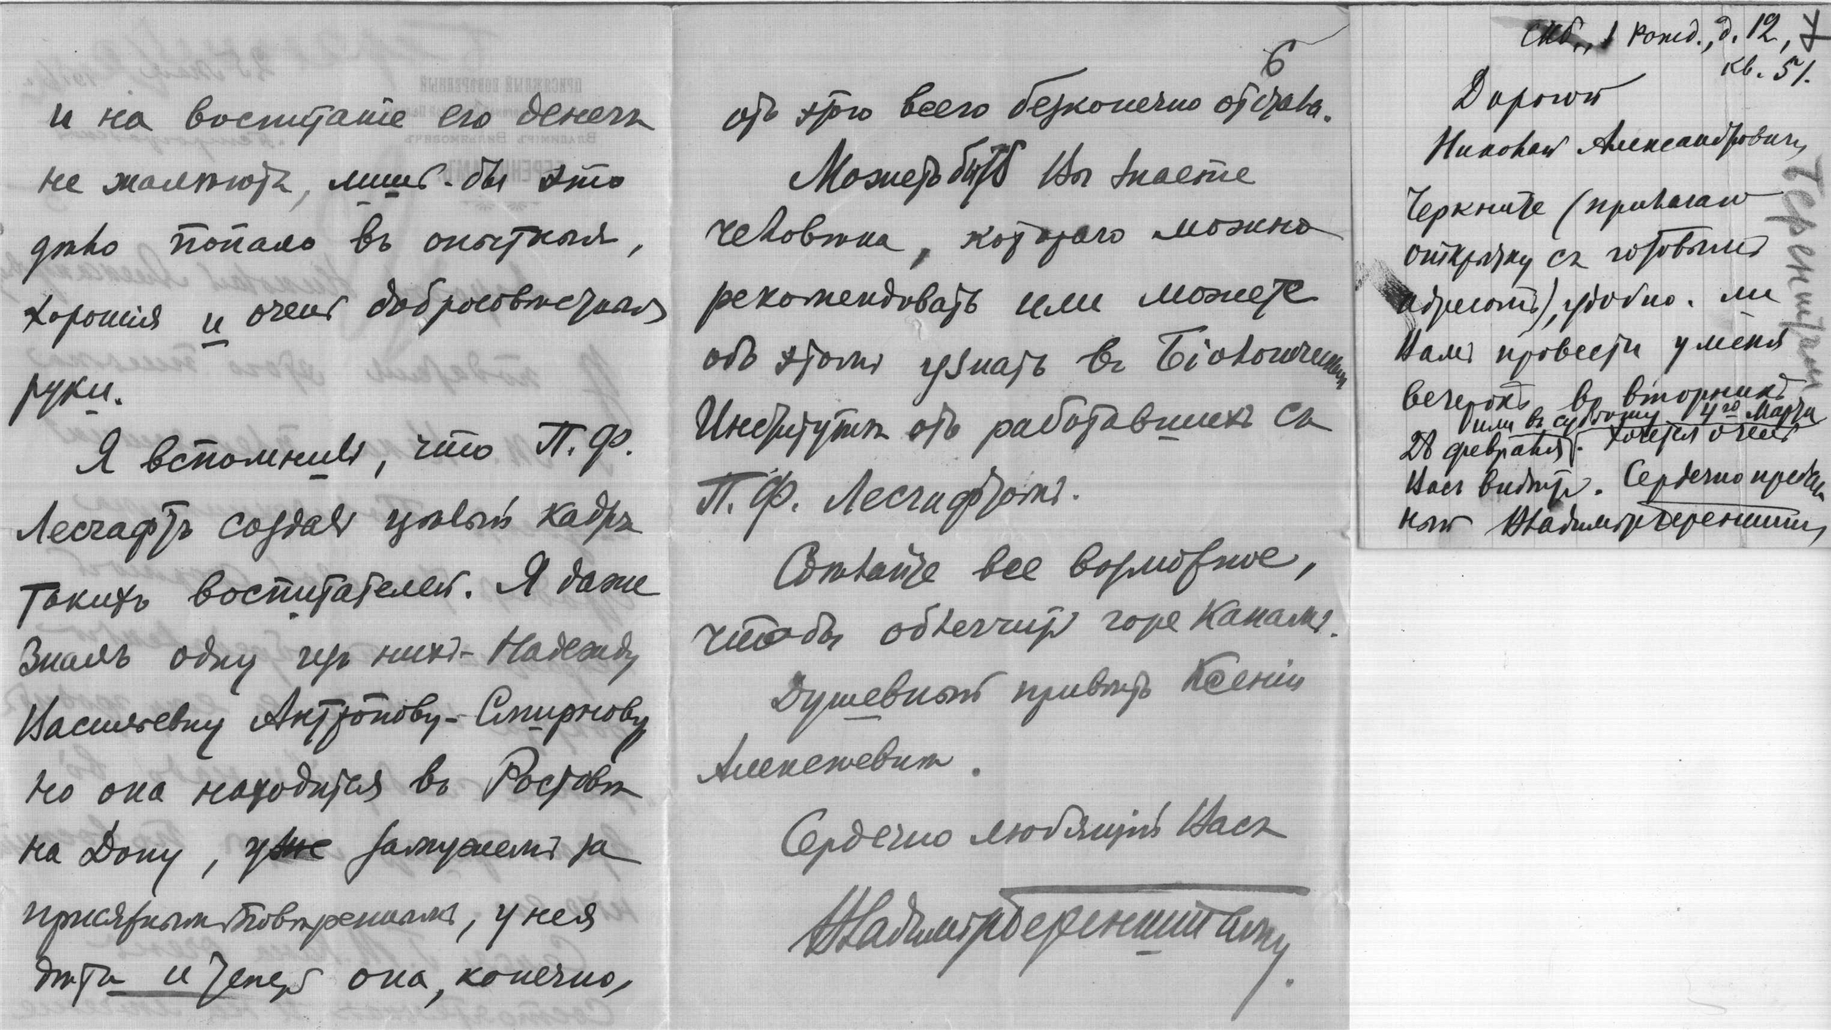 и на воспитанiе его денегъ
не жалѣютъ, лишь-бы это
дѣло попало въ опытныя,
хорошiя и очень добросовѣстныя
руки.
Я вспомнилъ, что П. Ф.
Лесгафтъ создалъ цѣлый кадръ
такихъ воспитателей. Я даже
зналъ одну изъ нихъ - Надежду
Васильевну Антропову-Смирнову
но она находится въ Ростовѣ
на Дону, уже замужемъ за
присяжнымъ повѣреннымъ, у нея
дѣти и теперь она, конечно,
6
отъ этого всего безконечно отстала.
Можетъ быть Вы знаете
человѣка, котораго можно
рекомендовать или можете
объ этомъ узнать въ Бiологическомъ
Институтѣ отъ работавшихъ съ
П. Ф. Лесгафтомъ.
Сдѣлайте все возможное,
чтобы облегчить горе Канамъ.
Душевный привѣтъ Ксенiи
Алексѣевнѣ.
Сердечно любящiй Васъ
Владимiръ Беренштамъ.
Спб., 1 ротд., д. 12, 7
кв. 51.
Дорогой
Николай Александровичъ,
Черкните (прилагаю
открытку съ готовымъ
адресомъ), удобно-ли
Вамъ провести у меня
вечерокъ во вторникъ
или въ субботу 4го Марта
28 февраля. Хочется очень
Васъ видѣть. Сердечно предан
ный Владимiръ Беренштамъ
Беренштам